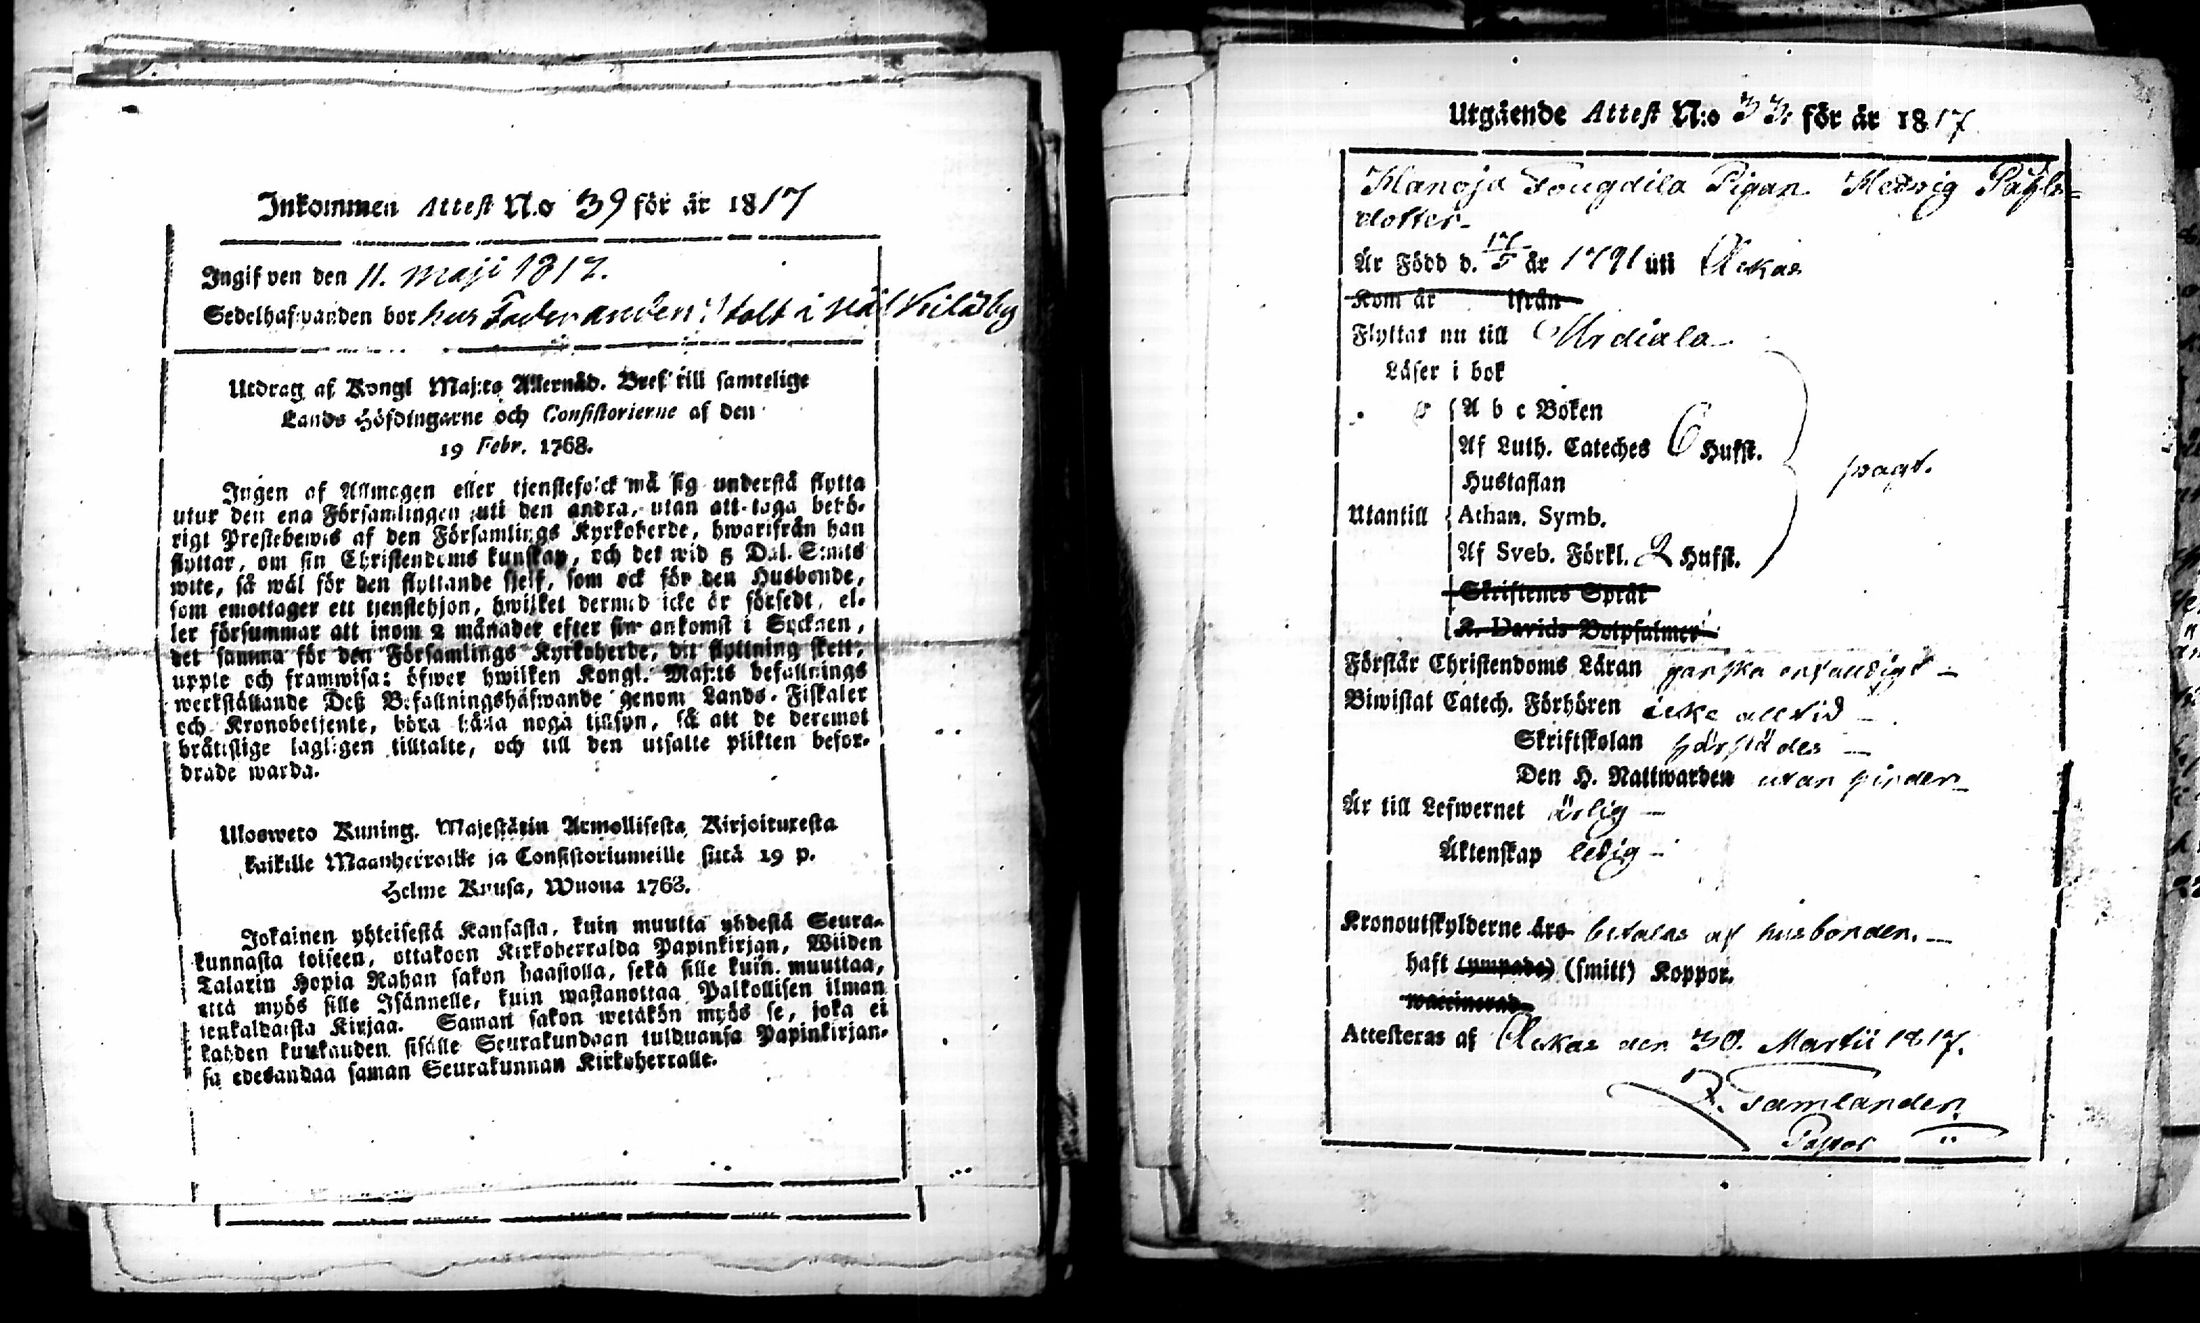 Inkommen Attest N:o 39 för år 1817
Ingifven den 11. Maji 1817.
Sedelhafvanden bor hus Fader anden Stolt i
Utdrag af Kongl Maj:ts Allernåd. Bref till samtelige
Lands Höfdingarne och Consistorierne af den
19 Febr. 1768.
Ingen af Allmogen eller tjenstefolck må sig understå flytta
utur den ena Församlingen uti den andra, utan att taga behö-
rigt Prestebewis af den Församlings Kyrkoherde, hwarifrån han
flyttar, om sin Christendoms kunskap, och det wid 5 Dal. S:mts
wite, så wäl för den flyttande sjelf, som ock för den Husbonde,
som emottager ett tjenstehjon, hwilket dermed icke är försedt, el-
ler försummar att inom 2 månader efter sin ankomst i Socknen,
det samma för den Församlings Kyrkoherde, dit flyttning skett,
uppte och framwisa: öfwer hwilken Kongl. Maj:ts befallnings
werkställande Deß Befallningshafwande genom Lands-Fiskaler
och Kronobetjente, böra hålla noga tillsyn, så att de deremot
bråttslige lagligen tilltalte, och till den utsatte plikten befor-
drade warda.
Ulosweto Kuning. Majestätin Armollisesta Kirjoituxesta
kaikille Maanherroille ja Consistoriumeille siitä 19 p.
Helme Kuusa, Wuona 1768.
Jokainen yhteisestä Kansasta, kuin muutta yhdestä Seura-
kunnasta toiseen, ottakoon Kirkoherralda Papinkirjan, Wiiden
Talarin Hopia Rahan sakon haastolla, sekä sille kuin muuttaa,
että myös sille Isännelle, kuin wastanottaa Palkollisen ilman
senkaldaista Kirjaa. Saman sakon wetäkön myös se, joka ei
kahden kuukauden sisälle Seurakundaan tulduansa Papinkirjan-
sa edesandaa saman Seurakunnan Kirkoherralle.
Utgående Attest N:o 33. för år 1817
Pigan Hedwig Påhls-
dotter-
Är Född d. 17/5 år 1791 uti Ackas
Kom år ifrån
Flyttar nu till Urdiala
Läser i bok
A b c Boken
Af Luth. Cateches 6 Hufst.
Hustaflan
Utantill Athan. Symb.
Af Sveb. Förkl. 2 Hufst.
Skriftenes Språk
K. Davids Botpsalmer
Förstår Christendoms Läran ganska enfaldigt -
Biwistat Catech. Förhören icke alltid -
Skriftskolan härstädes -
Den H. Nattwarden utan hinder -
Är till Lefwernet ärlig -
Äktenskap ledig -
Kronoutskylderne äro betalas af husbonden. -
haft (ympade) (smitt) Koppor.
waccinerad
Attesteras af Ackas den 30. Martii 1817.
Tamlander.
Pastor